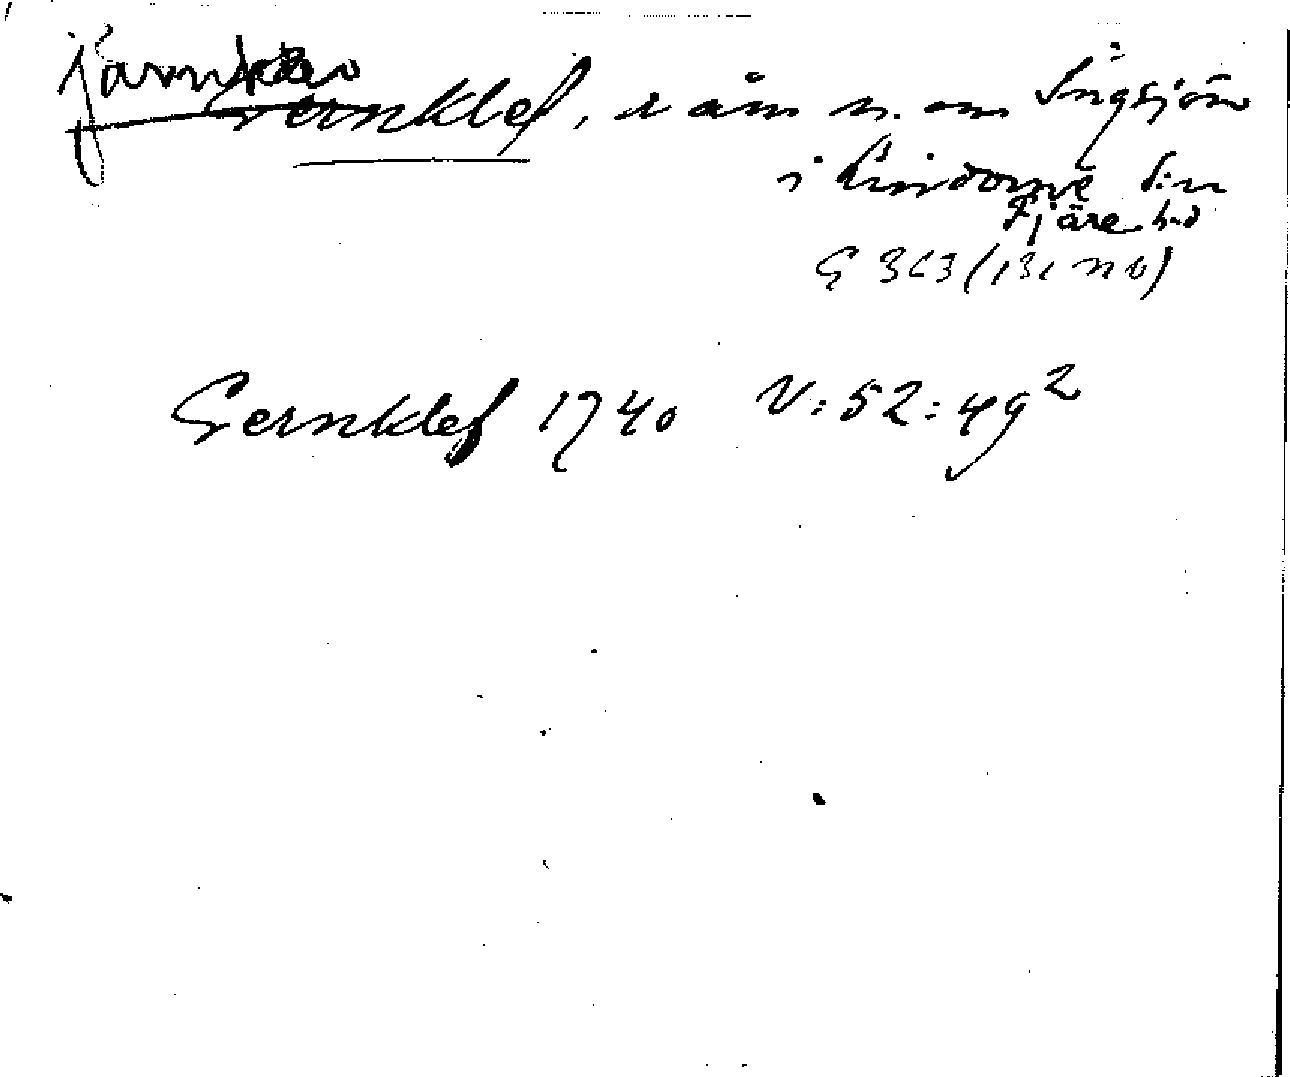 Järnklev
Gernklef, i åm n. om Ingsjön
i Lindome s:n
Fjäre h-d
G 363 (131 n o)
Gernklef 1740 V:52:49²